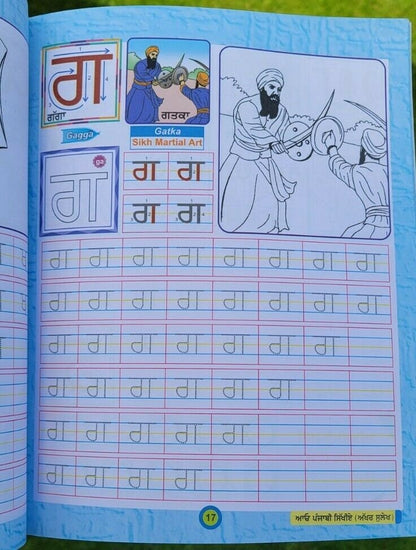 ਗ
ਗਗਾ
Gagga
ਗਤਕਾ
Gatka
Sikh Martial Art
ga
ਗ
ਗ ਗ
ਗ ਗ
ਗ ਗ ਗ ਗ ਗ ਗ ਗ ਗ
ਗ ਗ ਗ ਗ ਗ ਗ ਗ ਗ
ਗ ਗ ਗ ਗ ਗ ਗ ਗ
ਗ ਗ ਗ ਗ ਗ ਗ
ਗ ਗ ਗ ਗ ਗ
ਗ ਗ ਗ ਗ
17
ਆਓ ਪੰਜਾਬੀ ਸਿੱਖੀਏ (ਅੱਖਰ ਸੁਲੇਖ)